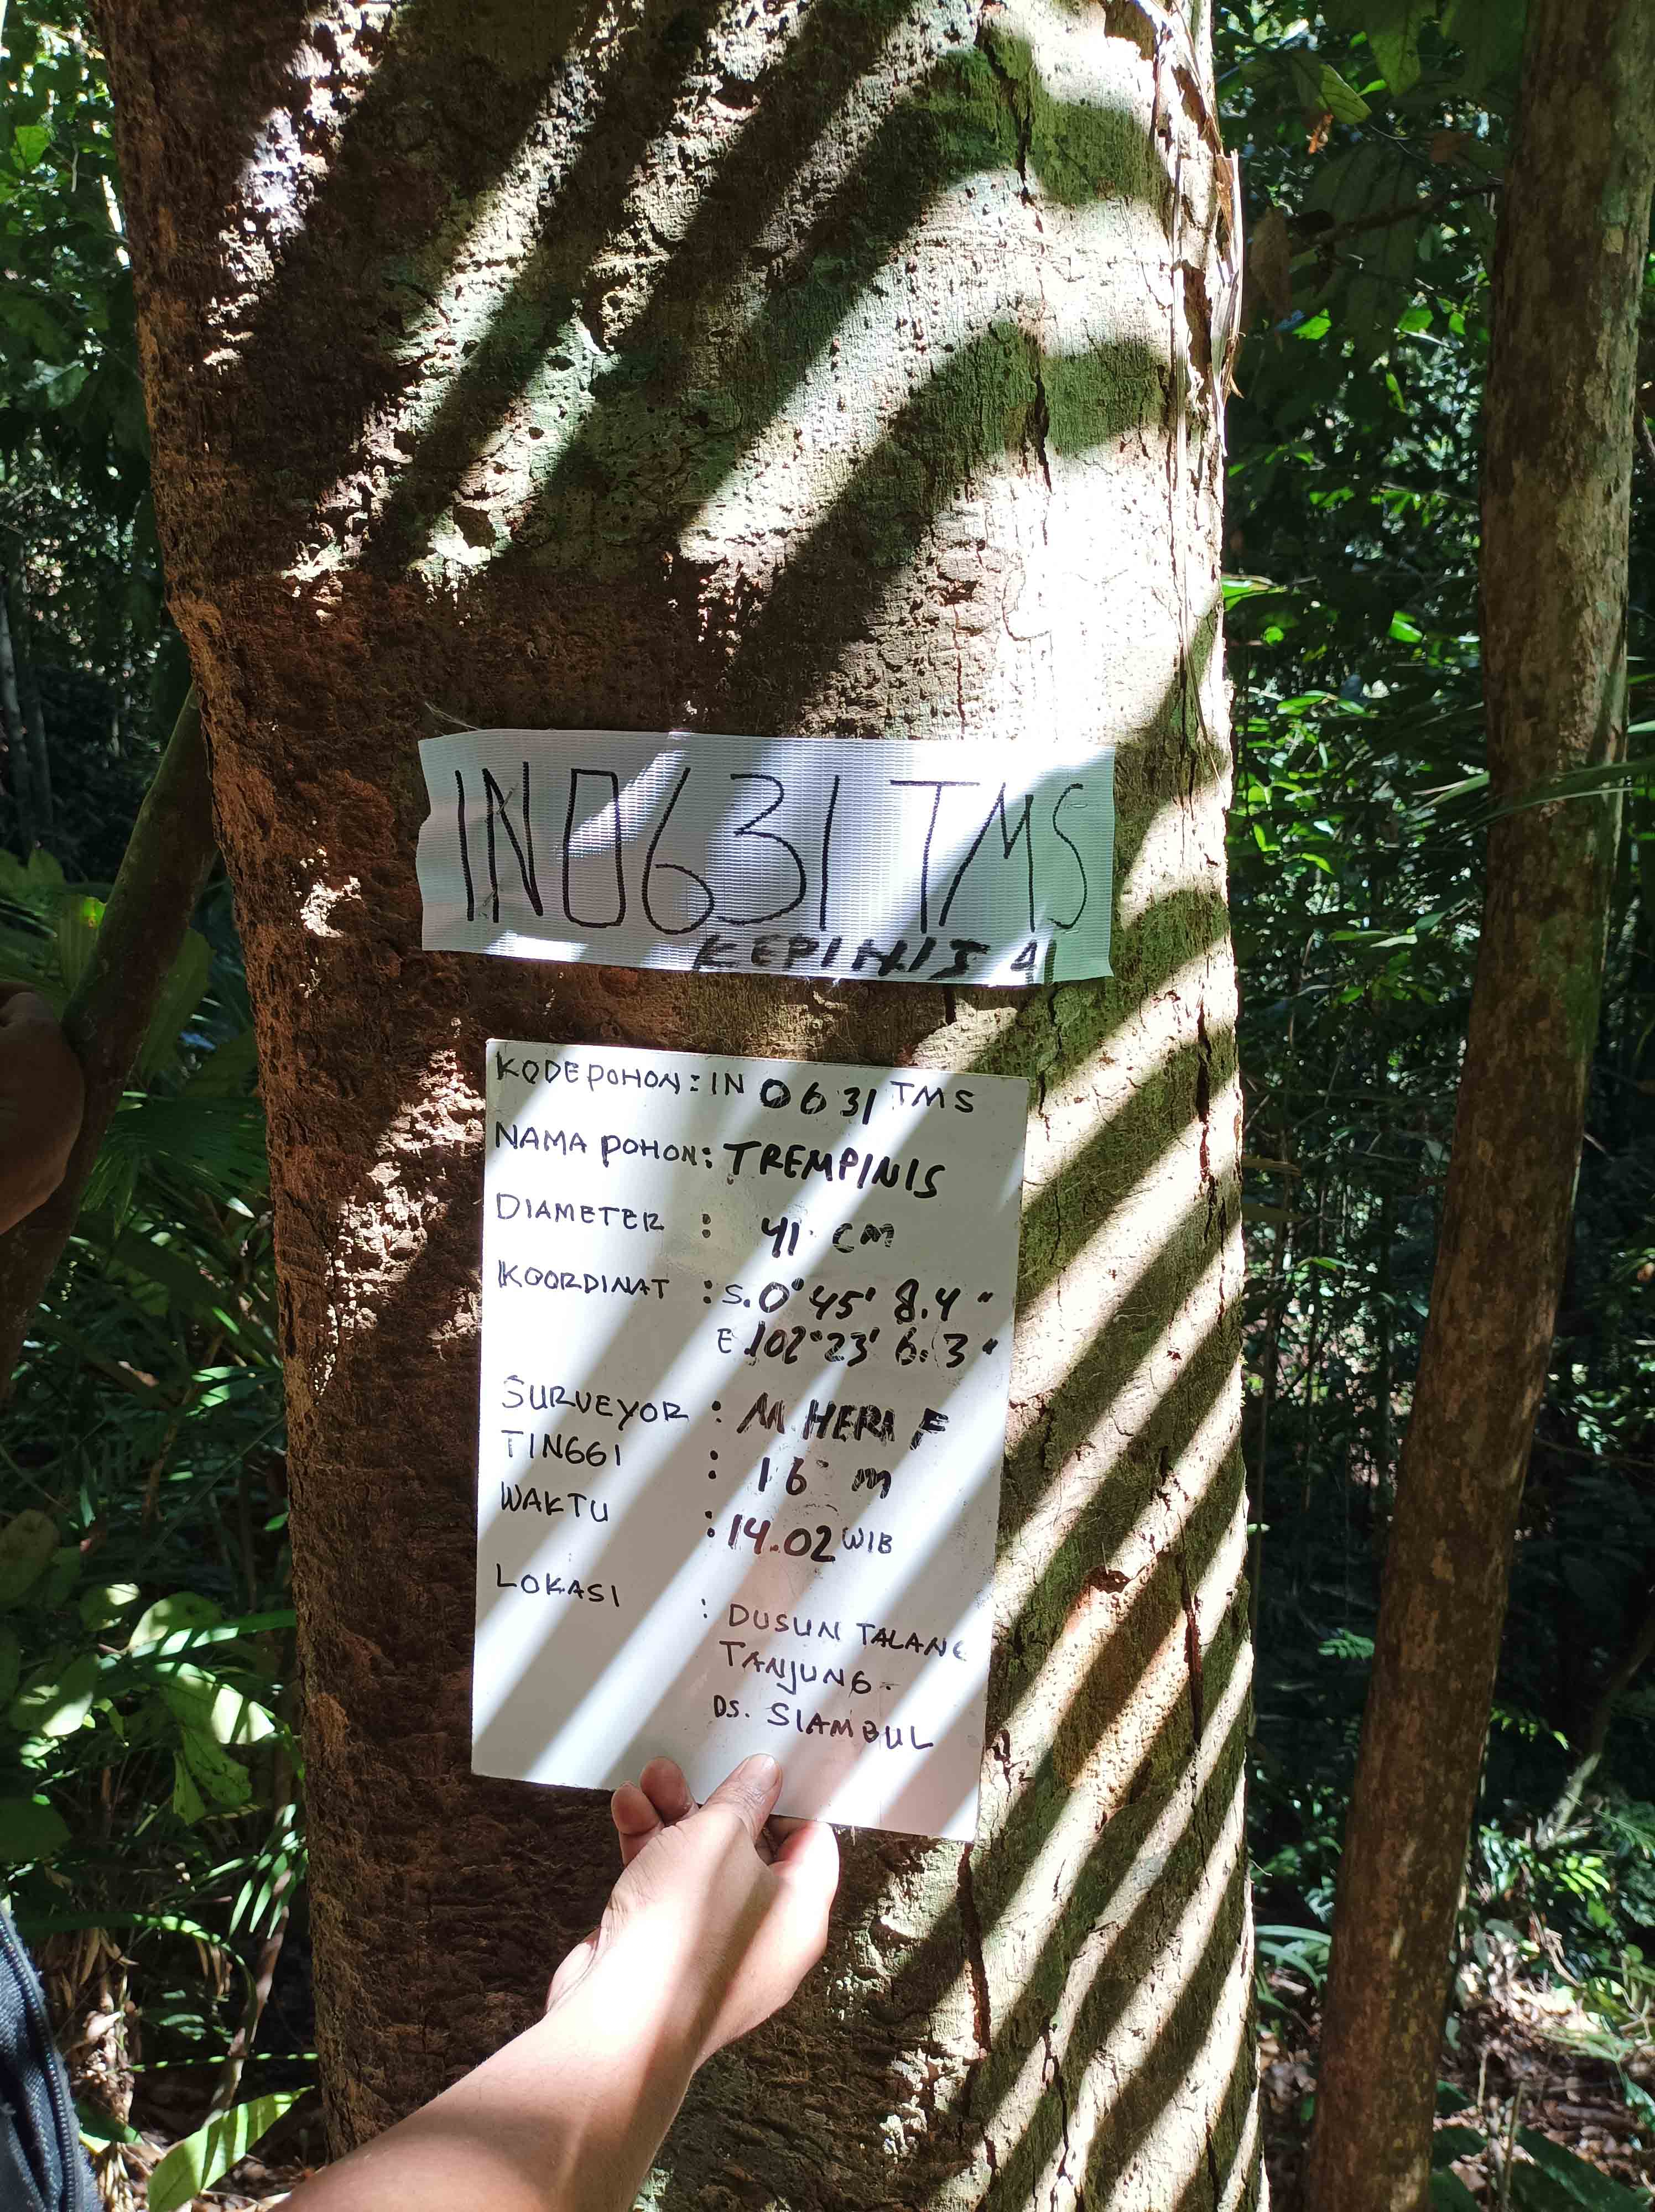 IN0631 TMS
KEPINIS 41
KODE POHON : IN 0631 TMS
NAMA POHON : TREMPINIS
DIAMETER : 41 CM
KOORDINAT : S. 0°45' 8.4"
E 102°23' 6.3"
SURVEYOR : M. HERI F
TINGGI : 16 m
WAKTU : 14.02 WIB
LOKASI : DUSUN TALANG
TANJUNG.
DS. SIAMBUL